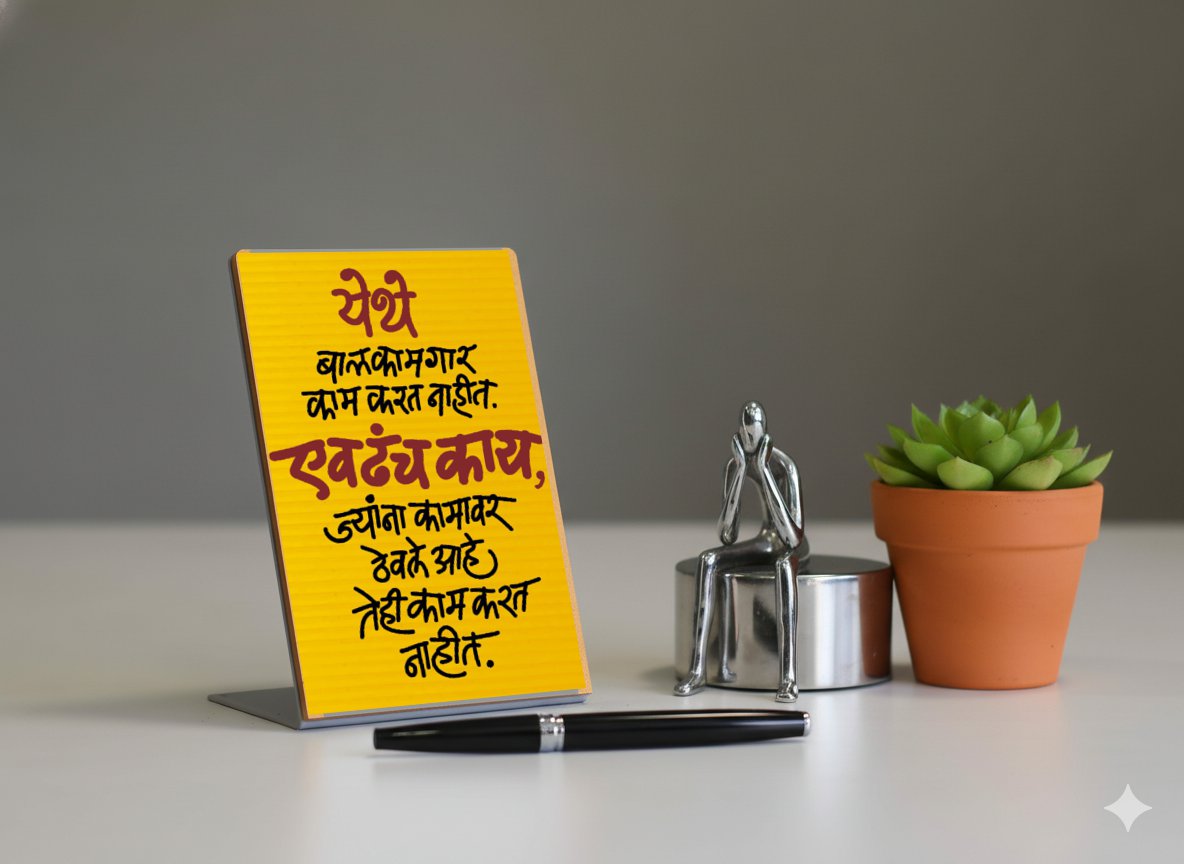 येथे
बालकामगार
काम करत नाहीत.
एवढंच काय,
ज्यांना कामावर
ठेवले आहे
तेही काम करत
नाहीत.